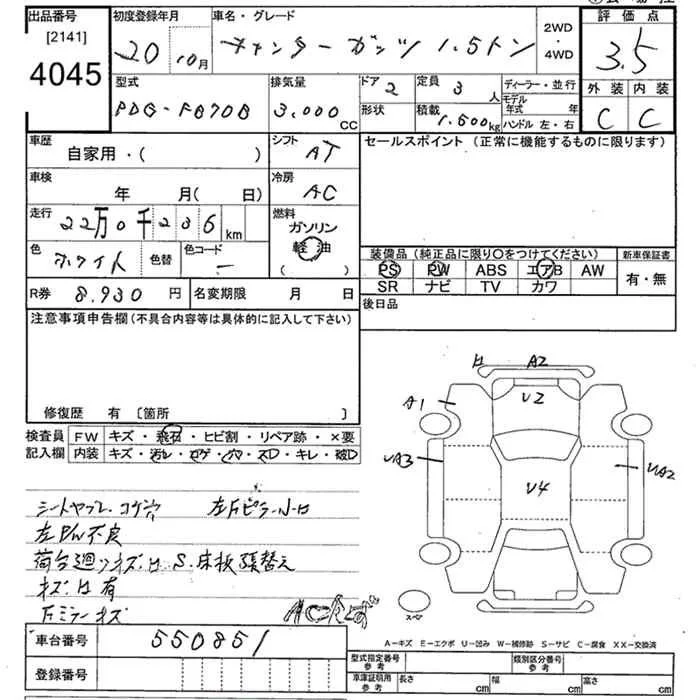 出品番号 初度登録年月 車名・グレード 評価点
[2141] 4045
20 10月 キャンターガッツ 1.5トン
2WD・4WD
3.5
型式 排気量 ドア 2 定員 3人 ディーラー・並行 外装 内装
PDG-FB70B 3,000cc 形状 積載 1.500kg モデル年式 年 ハンドル 左・右 C C
車歴 自家用・( ) シフト AT
セールスポイント(正常に機能するものに限ります)
車検 年 月( 日) 冷房 AC
走行 22万0千236km 燃料 ガソリン 軽油 ( )
色 ホワイト 色替 色コード －
装備品(純正品に限り○をつけてください) 新車保証書
PS PW ABS エアB AW 有・無
SR ナビ TV カワ
R券 8.930円 名変期限 月 日
後日品
注意事項申告欄(不具合内容等は具体的に記入して下さい)
修復歴 有 [箇所 ]
検査員記入欄 FW キズ・飛石・ヒビ割・リペア跡・×要
内装 キズ・汚レ・コゲ・穴・スレ・キレ・破レ
A2
A1 U2
UA3 U4 UA2
シートヤブレ コゲ穴
左P/W不良
荷台廻りキズ・H S.床板張替え
キズ・H有
スペア
A－キズ E－エクボ U－凹み W－補修跡 S－サビ C－腐食 XX－交換済
車台番号 550851
登録番号
型式指定番号 参考 類別区分番号 参考
車庫証明用 参考 長さ cm 幅 cm 高さ cm